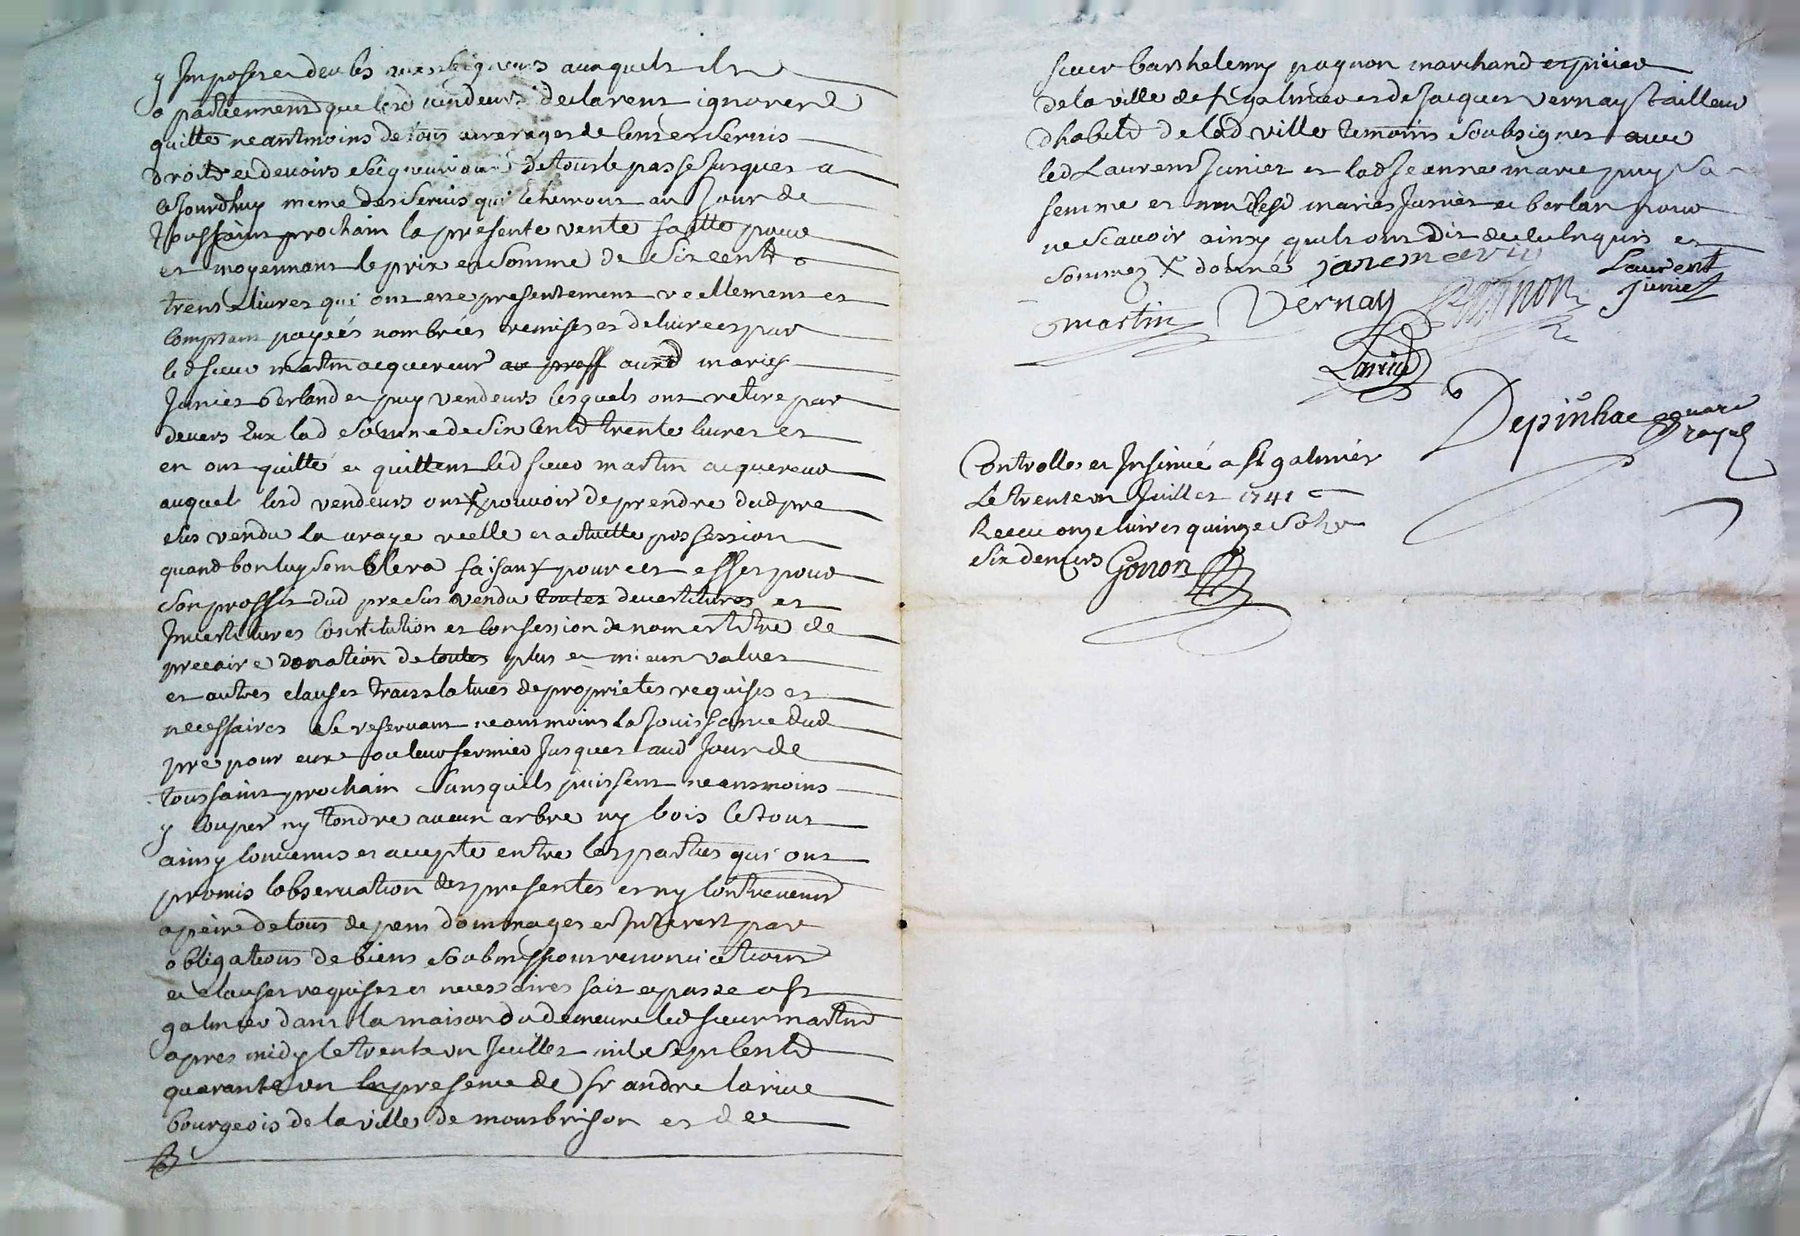 y Imposés et deubs aux seigneurs auxquels ils
apartiennent que lesd vendeurs declarent ignorer
quitte neantmoins de tous arrerages de cens et servis
droits et devoirs seigneuriaux de tout le passé jusques a
cejourdhuy meme des servis qui echerront au jour de
toussaint prochain la presente vente faitte pour
et moyennant le prix et somme de six cents
trente livres qui ont eté presentement reellement et
comptant payeés nombreés remises et delivreés par
led sieur martin acquereur au proff auxd mariés
Junier berland et puy vendeurs lesquels ont retiré par
devers Eux lad somme de six cents trente livres et
en ont quitté et quittent led sieur martin acquereur
auquel lesd vendeurs ont pouvoir de prendre dud pre
sus vendu la vraye reelle et actuelle possession
quand bon luy semblera faisant pour cet effet pour
son proffit dud pre sus vendu toutes devertitures et
Investitures constitution et confession de nom et titre de
precaire donation de toutes plus et mieux values
et autres clauses translatives de proprietes requises et
necessaires se reservant neantmoins la jouissance dud
pré pour eux ou leur fermier jusques aud jour de
toussaint prochain sans quils puissent neantmoins
y couper ny tondre aucun arbre ny bois le tout
ainsy convenu et accepté entre les parties qui ont
promis lobservation des presentes et ny contrevenir
a peine de tous depens dommages et Interest par
obligations de biens soubmissions renonciations
et clauses requises et necessaires fait et passé a st
galmier dans la maison du demeure led sieur martin
apres midy le trente un Juillet mil sept cents
quarante un en presence de sr andre larive
bourgeois de la ville de montbrison et de
sieur barthelemy pagnon marchand epicier
de la ville de st galmier et de Jacques vernay tailleur
dhabits de lad ville temoins soubsignes avec
led Laurens Junier et lad Jeanne marie puy sa
femme et non lesd mariés Junier et berlan pour
ne scavoir ainsy quils ont dit de ce enquis et
sommez X donné janemarie
Laurent
Junier
martin Vernay pagnon
Larive
Depinhac notaire
royal
Controllé et Insinué a st galmier
Le trente un Juillet 1741
Receu onze livres quinze sols
six deniers Gonon